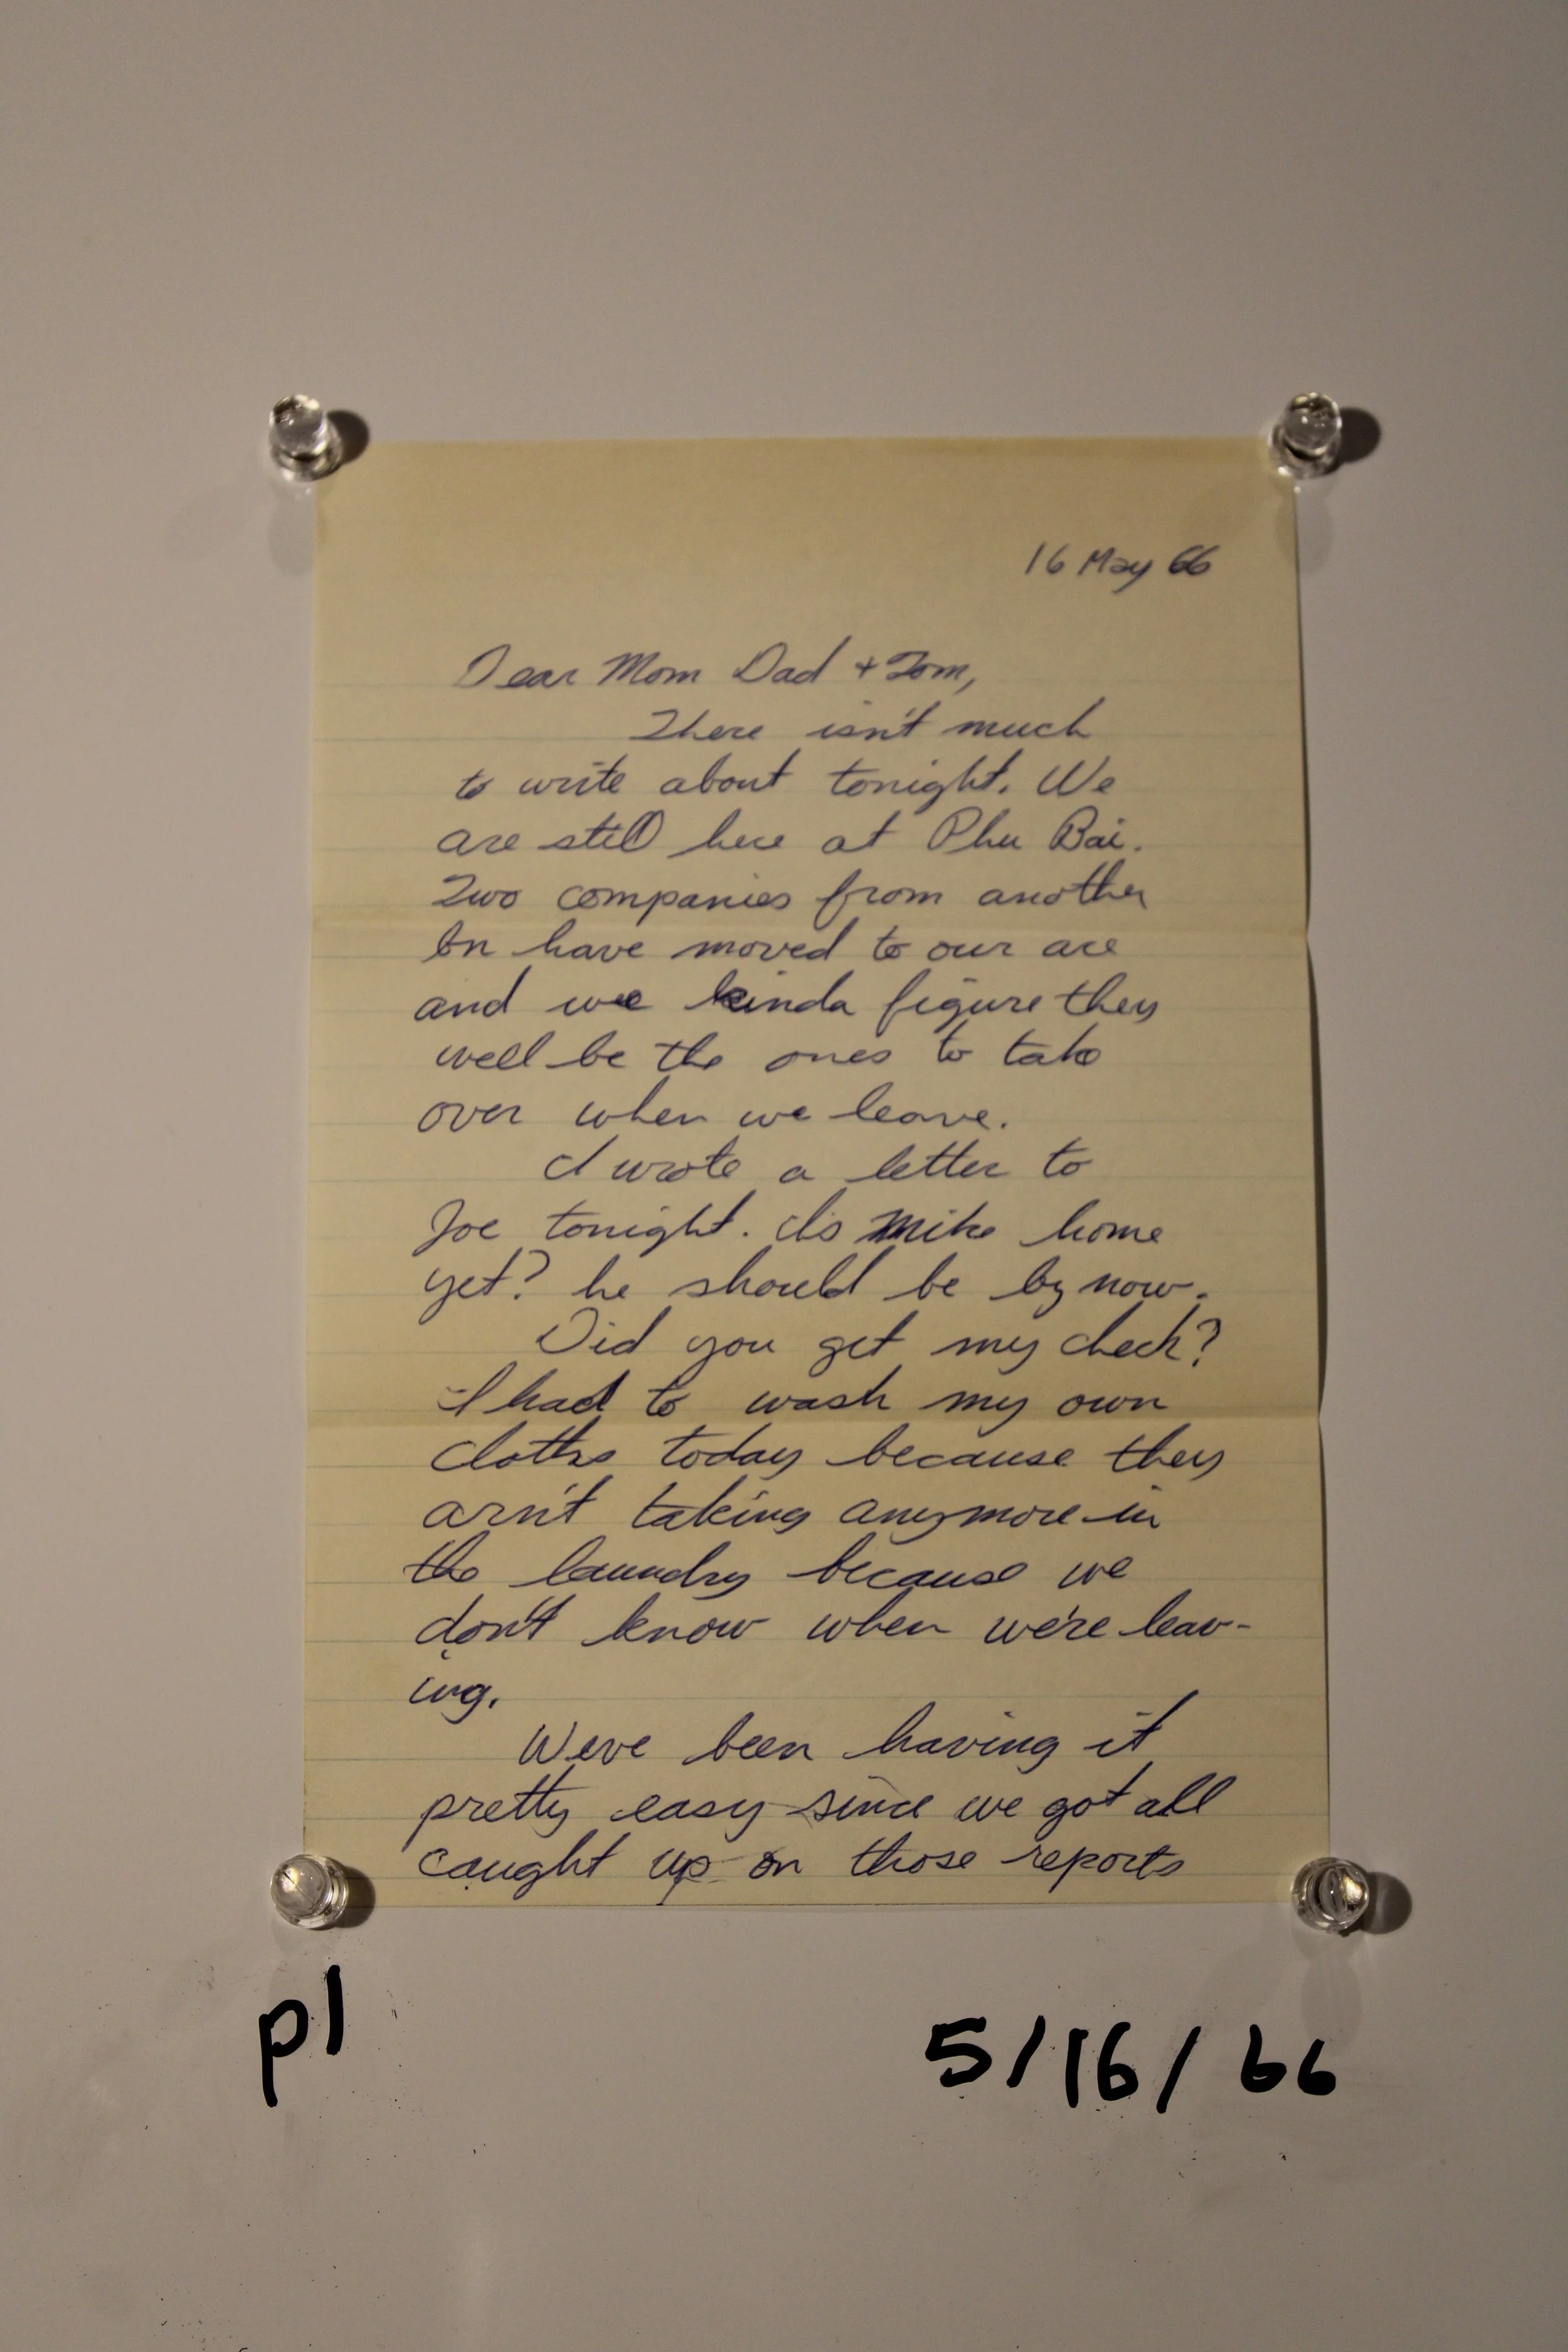 16 May 66
Dear Mom Dad + Tom,
There isn't much
to write about tonight. We
are still here at Phu Bai.
Two companies from another
bn have moved to our are
and we kinda figure they
well be the ones to take
over when we leave.
I wrote a letter to
Joe tonight. Is Mike home
yet? he should be by now.
Did you get my check?
I had to wash my own
cloths today because they
arn't taking anymore in
the laundry because we
don't know when we're leav-
ing.
We've been having it
pretty easy since we got all
caught up on those reports
p1
5/16/66